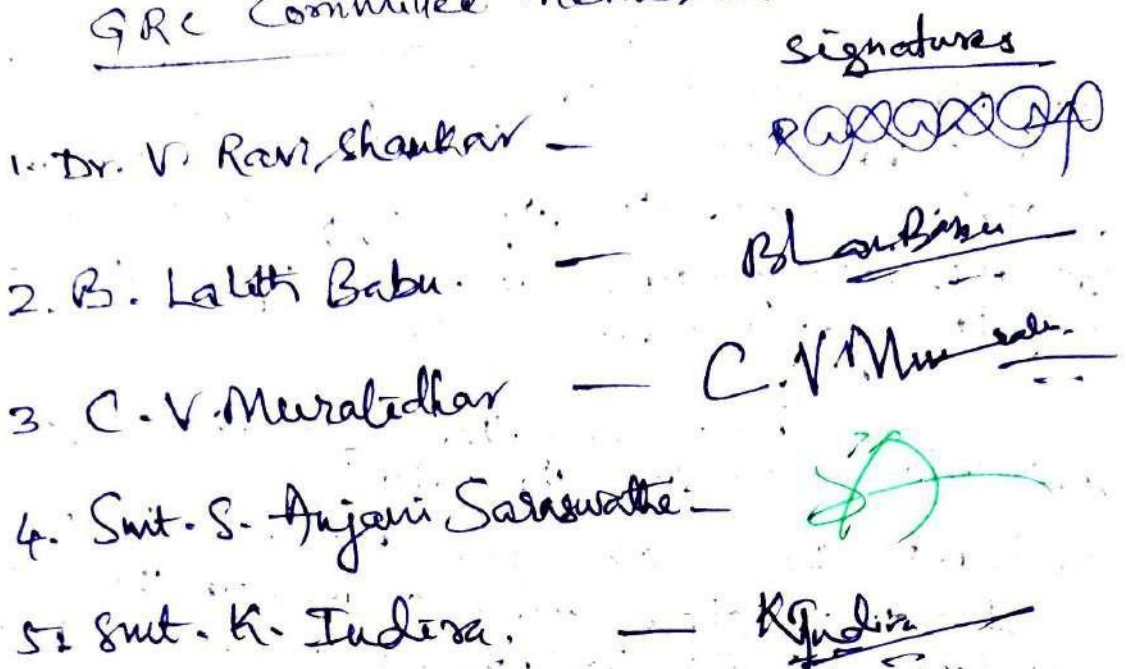 GRC Committee
signatures
1. Dr. V. Ravi Shankar —
2. B. Lalith Babu. —
3. C. V. Muralidhar — C. V. Mu
4. Smt. S. Anjani Saraswathi —
5. Smt. K. Indira. — K Indira